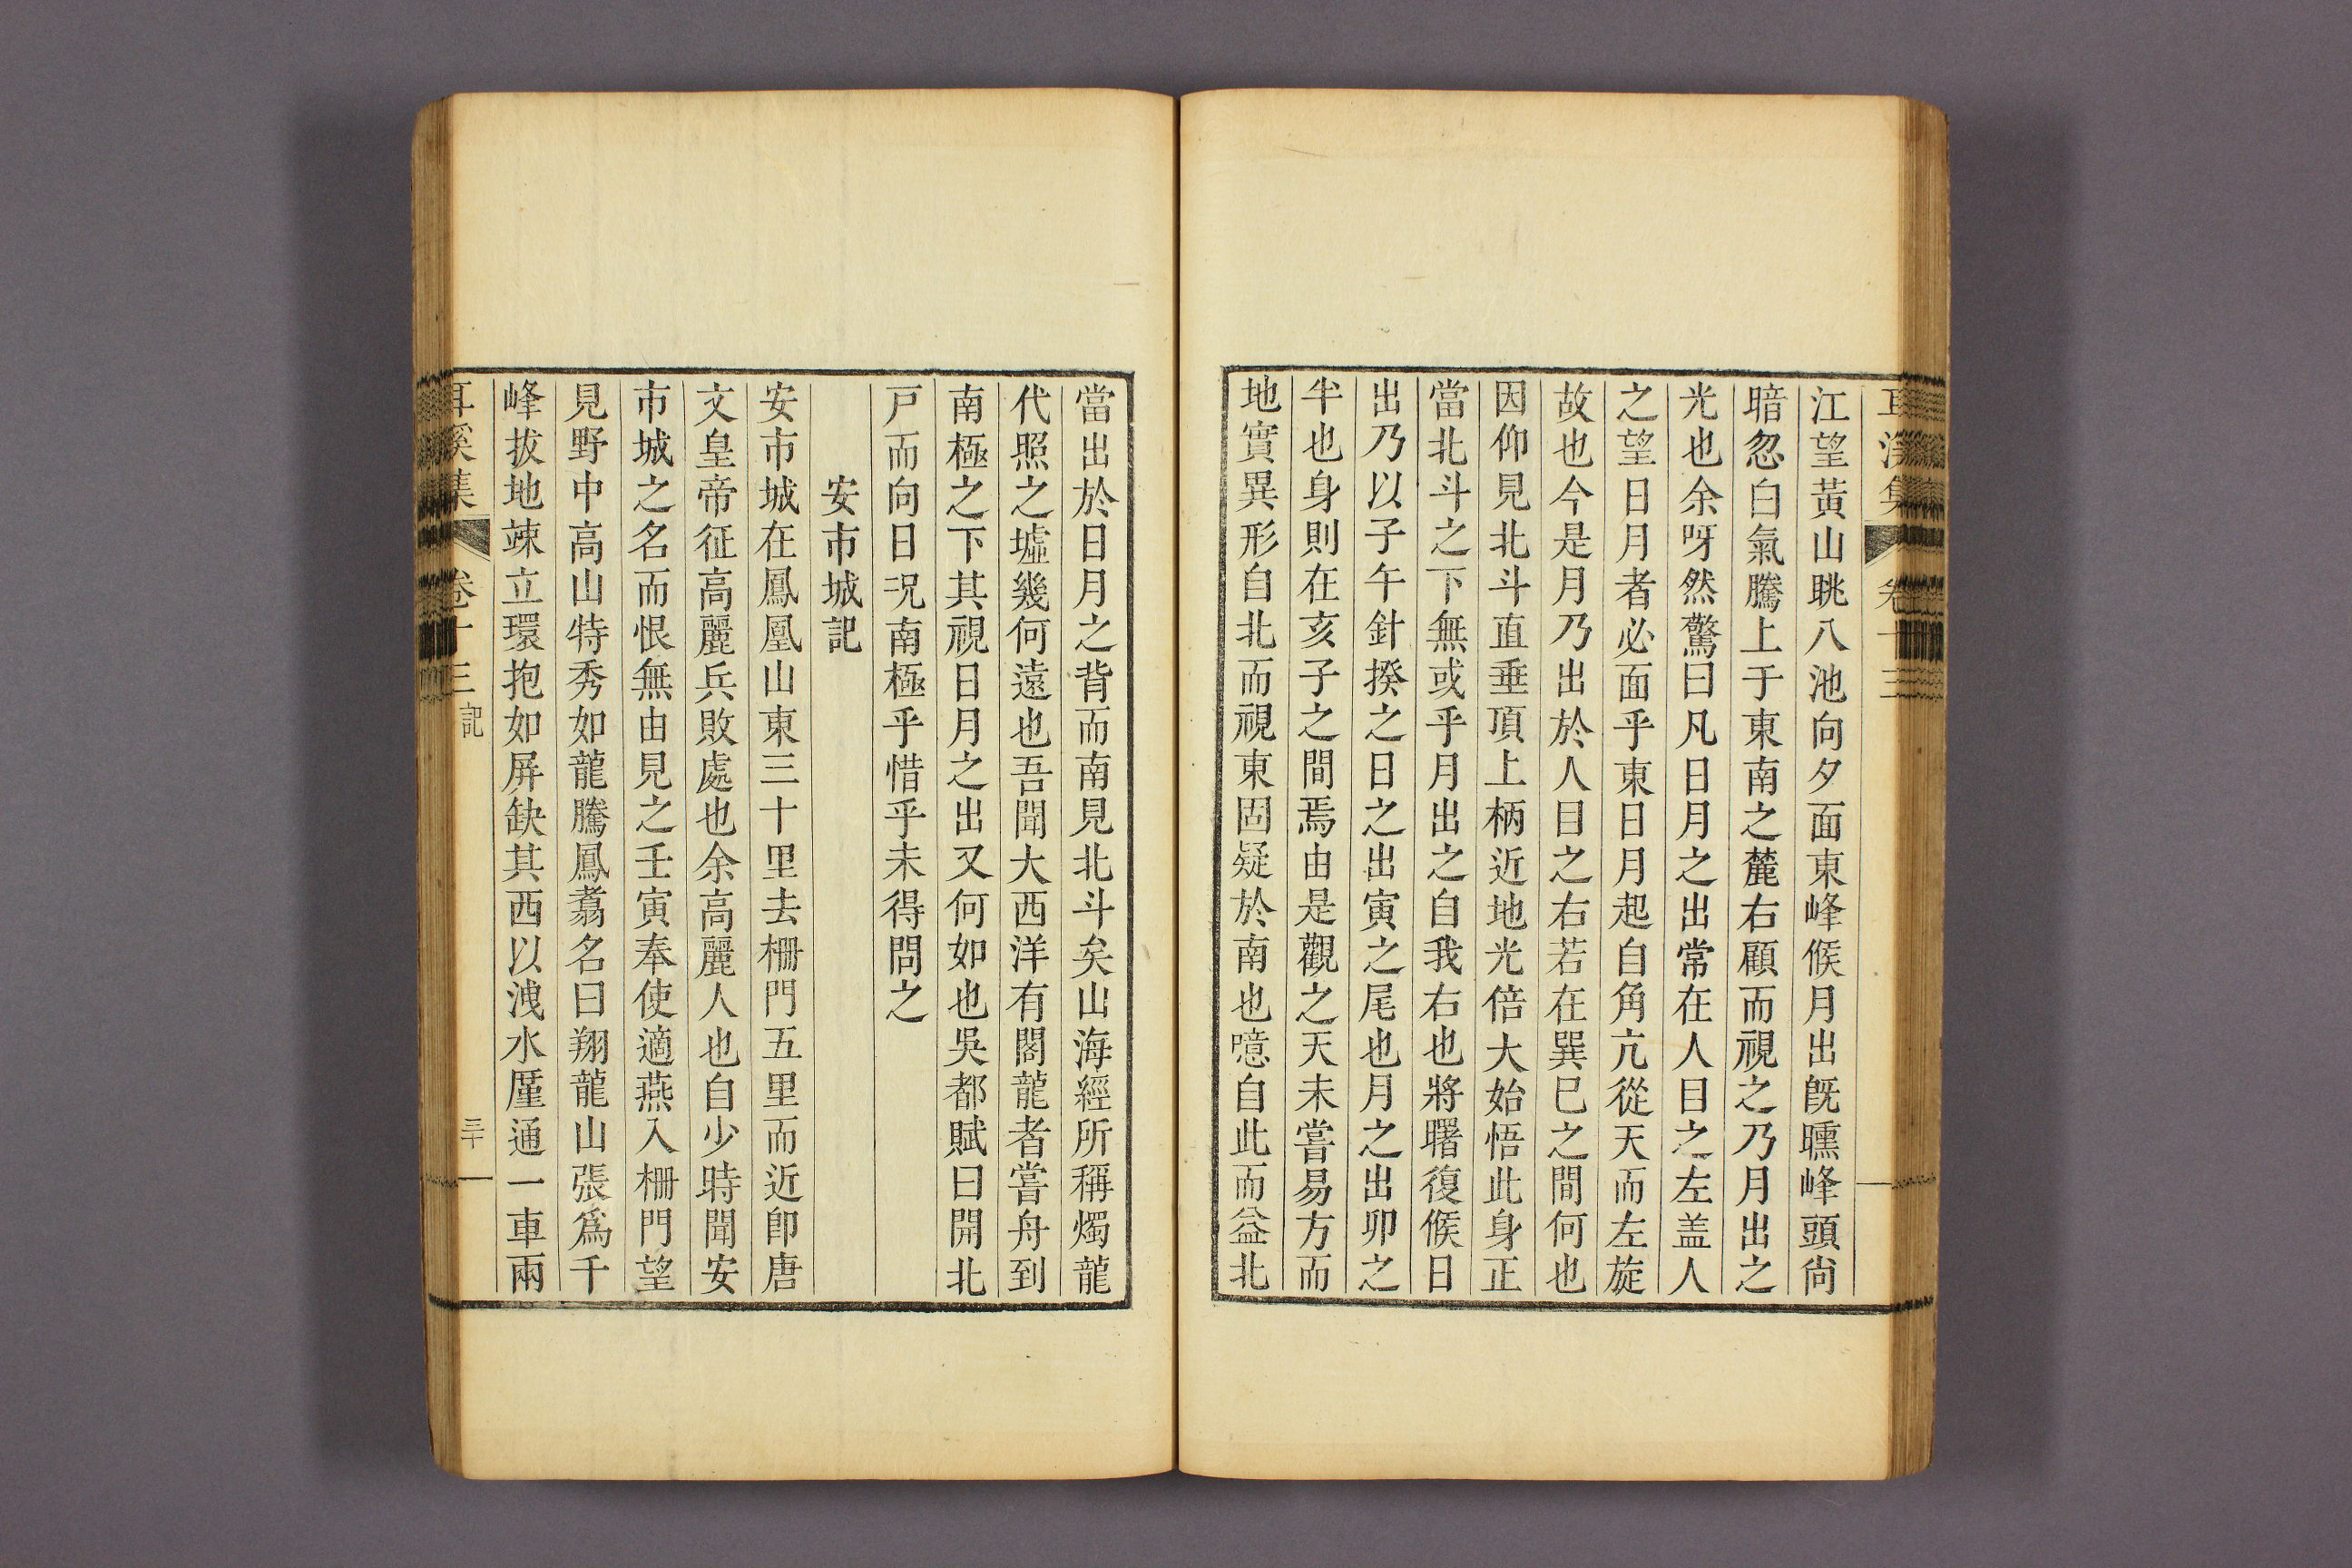 耳溪集 卷十三
江望黃山眺八池向夕面東峰候月出旣曛峰頭尙
暗忽白氣騰上于東南之麓右顧而視之乃月出之
光也余呀然驚曰凡日月之出常在人目之左盖人
之望日月者必面乎東日月起自角亢從天而左旋
故也今是月乃出於人目之右若在巽巳之間何也
因仰見北斗直垂頂上柄近地光倍大始悟此身正
當北斗之下無或乎月出之自我右也將曙復候日
出乃以子午針揆之日之出寅之尾也月之出卯之
半也身則在亥子之間焉由是觀之天未嘗易方而
地實異形自北而視東固疑於南也噫自此而益北
當出於日月之背而南見北斗矣山海經所稱燭龍
代照之墟幾何遠也吾聞大西洋有閣龍者嘗舟到
南極之下其視日月之出又何如也吳都賦曰開北
戶而向日况南極乎惜乎未得問之
安市城記
安市城在鳳凰山東三十里去柵門五里而近卽唐
文皇帝征高麗兵敗處也余高麗人也自少時聞安
市城之名而恨無由見之壬寅奉使適燕入柵門望
見野中高山特秀如龍騰鳳翥名曰翔龍山張爲千
峰拔地竦立環抱如屏缺其西以洩水厪通一車兩
耳溪集 卷十三 記 三十